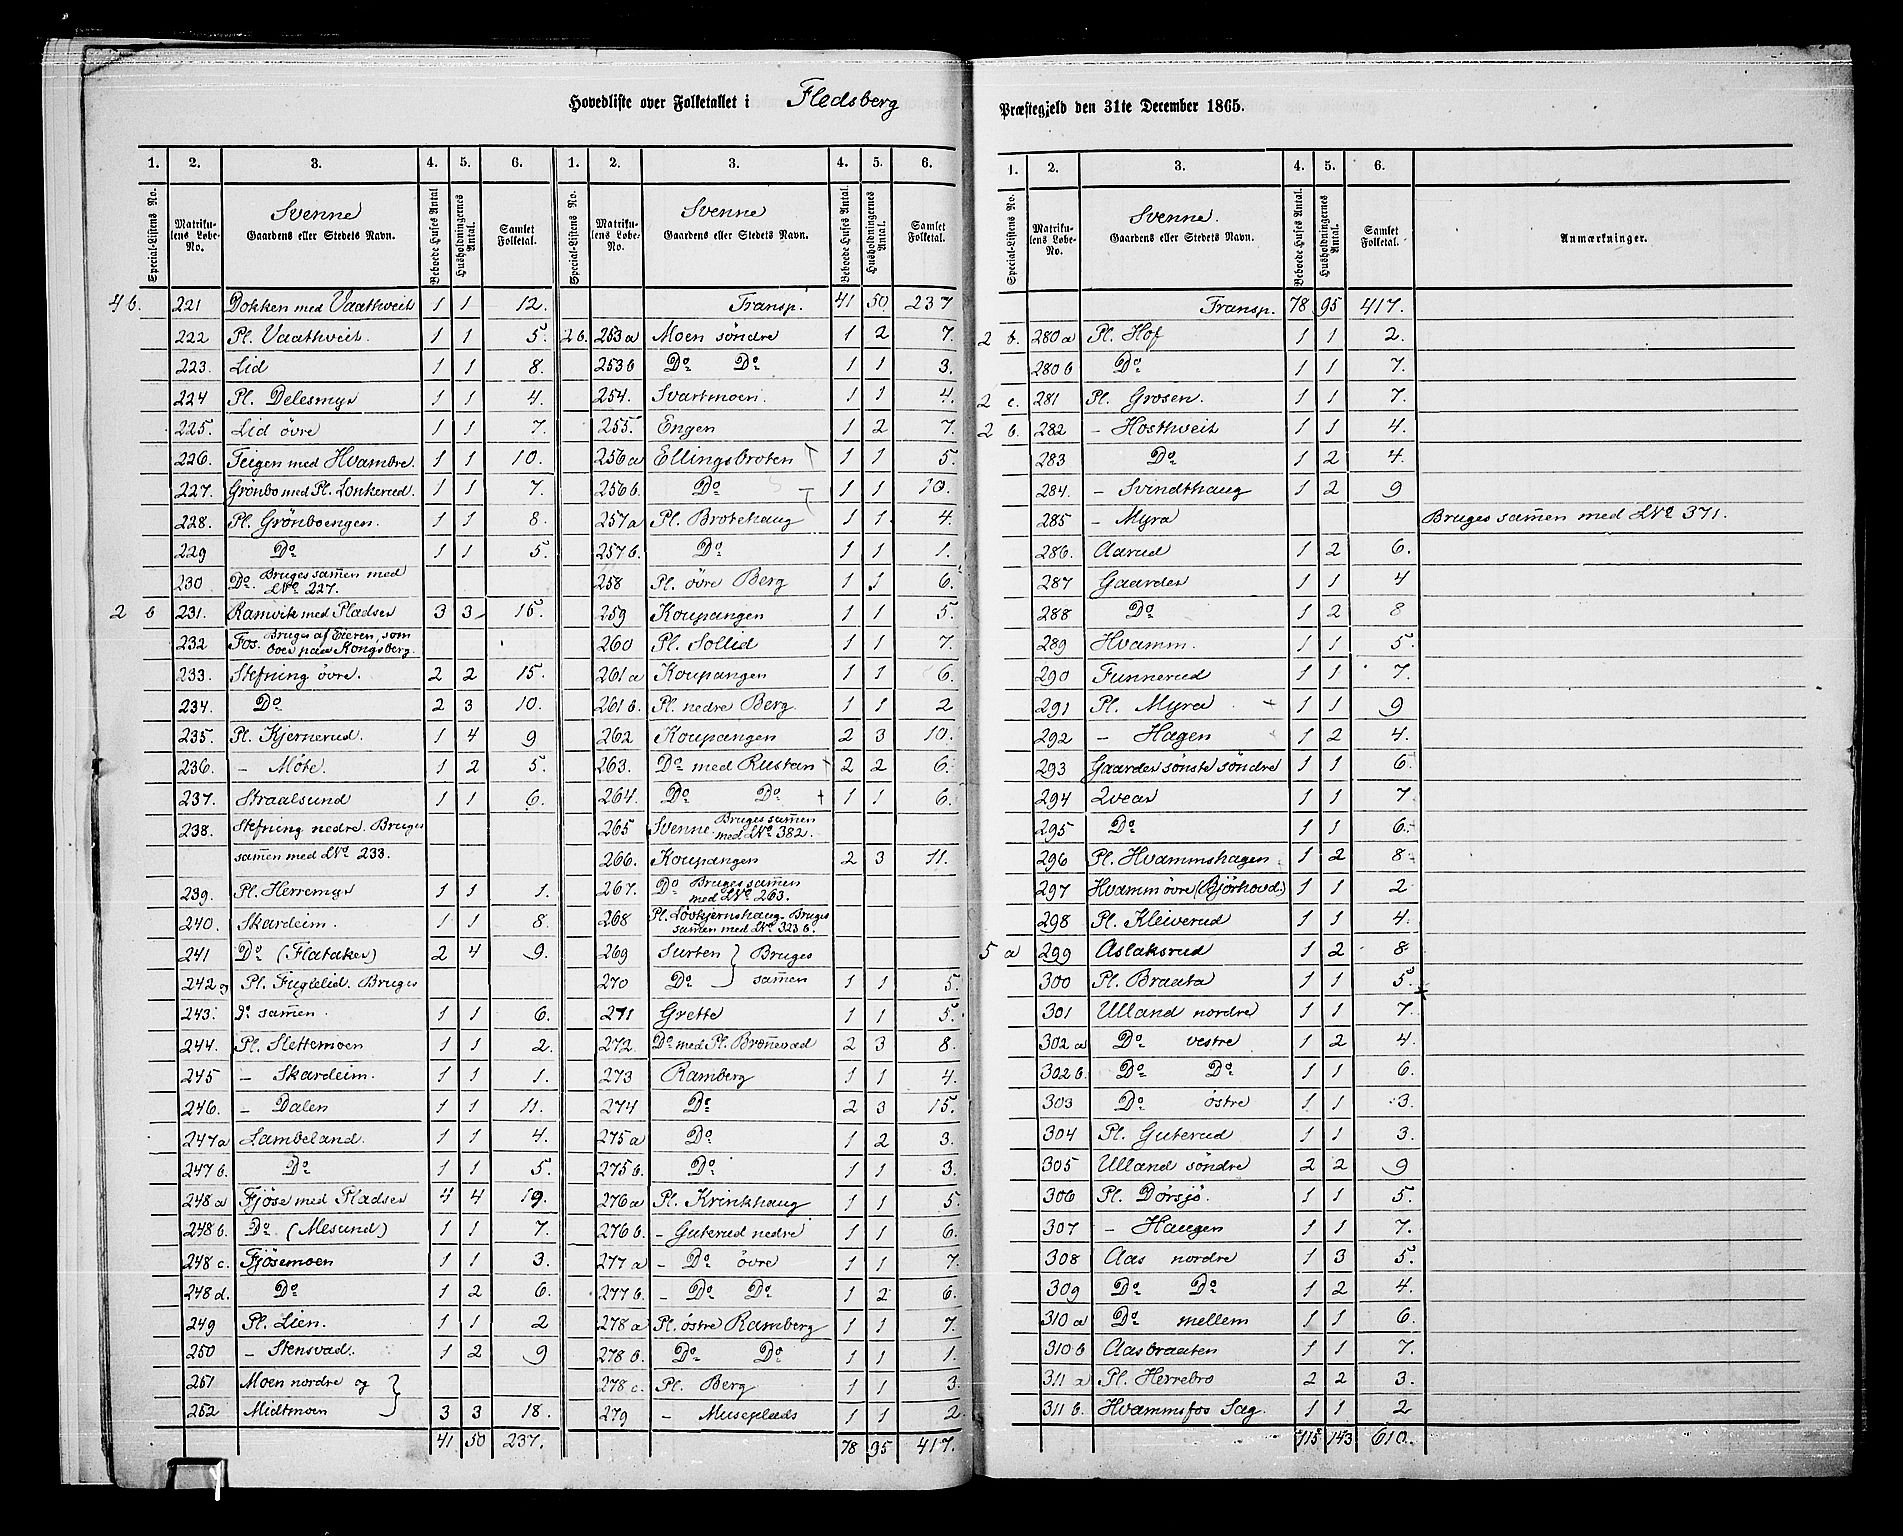 Hovedliste over Folketallet i Fledsberg
Præstegjeld den 31te December 1865.
1. 2. 3. 4. 5. 6.
Special-Listens No. Matrikulens Løbe-No. Svenne Gaardens eller Stedets Navn. Beboede Huses Antal Husholdningernes Antal. Samlet Folketal.
4 b. 221 Dokken med Vaathveit 1 1 12.
222 Pl. Vaathveit 1 1 5.
223. Lid 1 1 8.
224 Pl. Delesmyr 1 1 4.
225. Lid övre 1 1 7.
226. Teigen med Hvambre. 1 1 10.
227. Grönbo med Pl. Lonkerud. 1 1 7.
228. Pl. Grönboengen. 1 1 8.
229 Do 1 1 5.
230 Do. Bruges samen med LNo 227.
2 b 231. Ramvik med Pladser 3 3 15.
232 Fos. Bruges af Eieren, som boer paa Kongsberg.
233. Stefning övre. 2 2 15.
234. Do 2 3 10.
235. Pl. Kjernerud. 1 4 9
236. - Möte. 1 2 5.
237. Straalsund 1 1 6.
238. Stefning nedre. Bruges
samen med LNo 233.
239. Pl. Herremyr 1 1 1.
240. Skardeim. 1 1 8.
241 Do (Flataker) 2 4 9.
242 og Pl. Fuglelid. Bruges
243. Do samen. 1 1 6.
244. Pl. Slettemoen 1 1 2.
245 - Skardeim. 1 1 1.
246. - Dalen 1 1 11.
247 a Lambeland. 1 1 4.
247 b. Do 1 1 5.
248 a Fjöse med Pladser 4 4 19.
248 b. Do (Mesund) 1 1 7.
248 c. Fjösemoen 1 1 3.
248 d. Do 1 2 6.
249 Pl. Lien. 1 1 2
250 - Stensvad. 1 2 9
251 Moen nordre og
252 Midtmoen 3 3 18.
41 50 237.
1. 2. 3. 4. 5. 6.
Special-Listens No. Matrikulens Løbe-No. Svenne Gaardens eller Stedets Navn. Beboede Huses Antal. Husholdningernes Antal. Samlet Folketal.
Transp. 41 50 237
2 b. 253 a Moen söndre 1 2 7.
253 b Do Do 1 1 3.
254. Svartmoen. 1 1 4.
255. Engen 1 2 7.
256 a Ellingsbroten 1 1 5.
256 b. Do 1 1 10.
257 a Pl. Brotehaug 1 1 4.
257 b. Do 1 1 1.
258 Pl. övre Berg 1 1 6.
259 Koupangen 1 1 5.
260 Pl. Sollid 1 1 7.
261 a Koupangen 1 1 6.
261 b. Pl. nedre Berg. 1 1 2
262 Koupangen 2 3 10.
263. Do med Rustan + 2 2 6.
264. Do Do + 1 1 6.
265 Svenne. Bruges samen med LNo 382.
266. Koupangen 2 3 11.
267. Do Bruges samen med LNo 263.
268 Pl. Lövtjernshaug. Bruges samen med LNo 323 b.
269 Surten } Bruges
270 Do samen 1 1 5.
271 Grette 1 1 5.
272. Do med Pl. Bronevad 2 3 8.
273 Ramberg 1 1 4.
274 Do 2 3 15.
275 a Do 1 2 3.
275 b. Do 1 1 3.
276 a Pl. Krinkhaug 1 1 5
276 b. - Guterud nedre 1 1 6.
277 a - Do övre 1 1 7.
277 b. - Do Do 1 2 6.
278 a Pl. östre Ramberg 1 1 7.
278 b. Do Do 1 1 1.
278 c. Pl. Berg 1 1 3.
279 - Museplads 1 1 2
78 95 417.
1. 2. 3. 4. 5. 6.
Special-Listens No. Matrikulens Løbe-No. Svenne. Gaardens eller Stedets Navn. Beboede Huses Antal. Husholdningernes Antal. Samlet Folketal. Anmærkninger.
Transp. 78 95 417.
2 b. 280 a Pl. Hof 1 1 2.
280 b Do 1 1 7.
2 c. 281 Pl. Grosen. 1 1 7.
2 b. 282 - Hosthveit 1 1 4.
283 Do 1 2 4.
284. - Svindthaug 1 2 9
285 - Myra Bruges samen med LNo 371.
286. Aarud 1 2 6.
287 Gaarder 1 1 4
288 Do 1 2 8
289 Hvamm. 1 1 5.
290 Funnerud 1 1 7.
291 Pl. Myra + 1 1 9
292 - Hagen 1 2 4.
293 Gaarder sönste söndre 1 1 6.
294 Qvear 1 1 7
295 Do 1 1 6.
296 Pl. Hvammshagen. 1 2 8
297 Hvamm övre (Björhovd.) 1 1 2.
298 Pl. Kleiverud 1 1 4.
5 a 299 Aslaksrud 1 2 8
300 Pl. Braata 1 1 5.
301 Ulland nordre 1 1 7.
302 a Do vestre 1 2 4.
302 b. Do Do 1 1 6.
303 Do östre 1 1 3.
304 Pl. Guterud 1 1 3.
305 Ulland söndre 2 2 9
306 Pl. Dörsjö. 1 1 5.
307 - Haugen 1 1 7.
308 Aas nordre 1 3 5.
309 Do Do 1 2 4.
310 a Do mellem 1 1 6.
310 b Aasbraaten 1 1 7.
311 a Pl. Herrebro 2 2 3.
311 b. Hvammsfos Sag. 1 1 2
115 143 610.